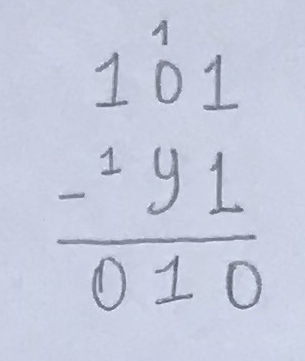 1
101
- ¹91
010